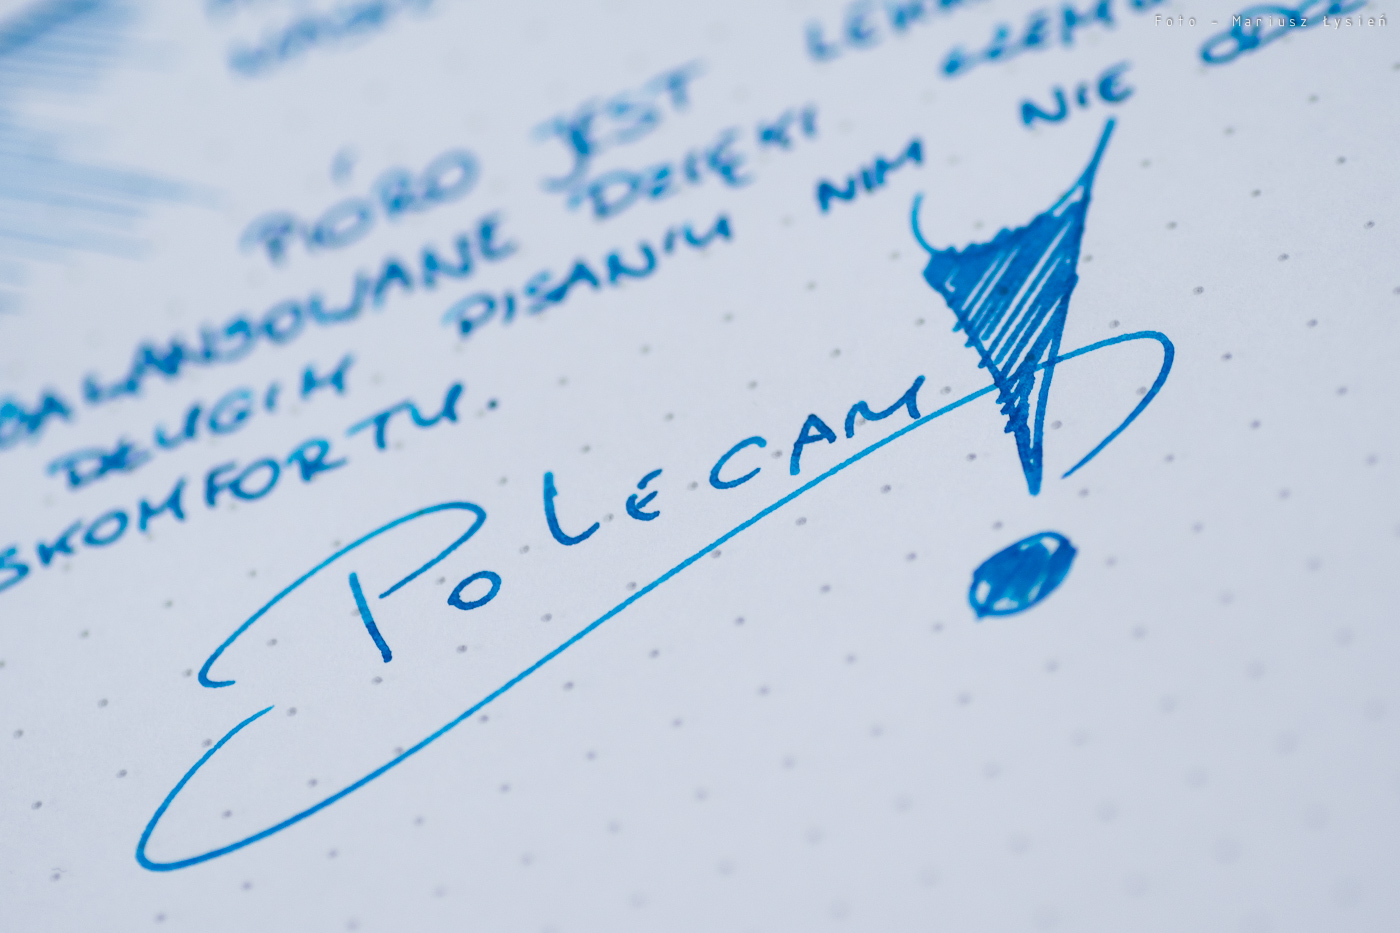 Foto - Mariusz Łysień
PIÓRO JEST LEKK
BALANSOWANE DZIĘKI CZEMU
DŁUGIM PISANIU NIM NIE ODCZ
SKOMFORTU.
POLECAM!